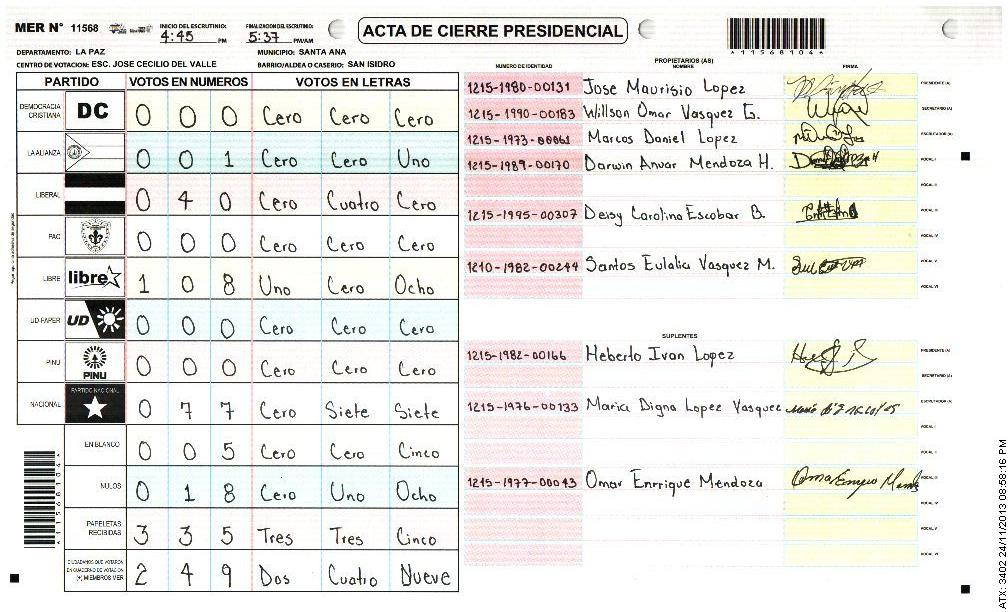 MER N° 11568 INICIO DEL ESCRUTINIO: 4:45 PM FINALIZACION DEL ESCRUTINIO: 5:37 PM/AM
ACTA DE CIERRE PRESIDENCIAL
*11568104*
DEPARTAMENTO: LA PAZ MUNICIPIO: SANTA ANA
CENTRO DE VOTACION: ESC. JOSE CECILIO DEL VALLE BARRIO/ALDEA O CASERIO: SAN ISIDRO
PARTIDO VOTOS EN NUMEROS VOTOS EN LETRAS
DEMOCRACIA CRISTIANA DC 0 0 0 Cero Cero Cero
LA ALIANZA 0 0 1 Cero Cero Uno
LIBERAL 0 4 0 Cero Cuatro Cero
PAC 0 0 0 Cero Cero Cero
LIBRE libre 1 0 8 Uno Cero Ocho
UD-FAPER UD 0 0 0 Cero Cero Cero
PINU PINU 0 0 0 Cero Cero Cero
NACIONAL PARTIDO NACIONAL 0 7 7 Cero Siete Siete
EN BLANCO 0 0 5 Cero Cero Cinco
NULOS 0 1 8 Cero Uno Ocho
PAPELETAS RECIBIDAS 3 3 5 Tres Tres Cinco
CIUDADANOS QUE VOTARON EN CUADERNO DE VOTACION (+) MIEMBROS MER 2 4 9 Dos Cuatro Nueve
*11568104*
PROPIETARIOS (AS)
NUMERO DE IDENTIDAD NOMBRE FIRMA
1215-1980-00131 Jose Maurisio Lopez PRESIDENTE (A)
1215-1990-00183 Willson Omar Vasquez G. SECRETARIO (A)
1215-1973-00061 Marcos Daniel Lopez ESCRUTADOR (A)
1215-1989-00170 Darwin Anuar Mendoza H. VOCAL I
VOCAL II
1215-1995-00307 Deisy Carolina Escobar B. VOCAL III
VOCAL IV
1210-1982-00244 Santos Eulalia Vasquez M. VOCAL V
VOCAL VI
SUPLENTES
1215-1982-00166 Heberto Ivan Lopez PRESIDENTE (A)
SECRETARIO (A)
1215-1976-00133 Marica Digna Lopez Vasquez ESCRUTADOR (A)
VOCAL I
VOCAL II
1215-1977-00043 Omar Enrrique Mendoza VOCAL III
VOCAL IV
VOCAL V
VOCAL VI
ATX: 3402 24/11/2013 08:58:16 PM